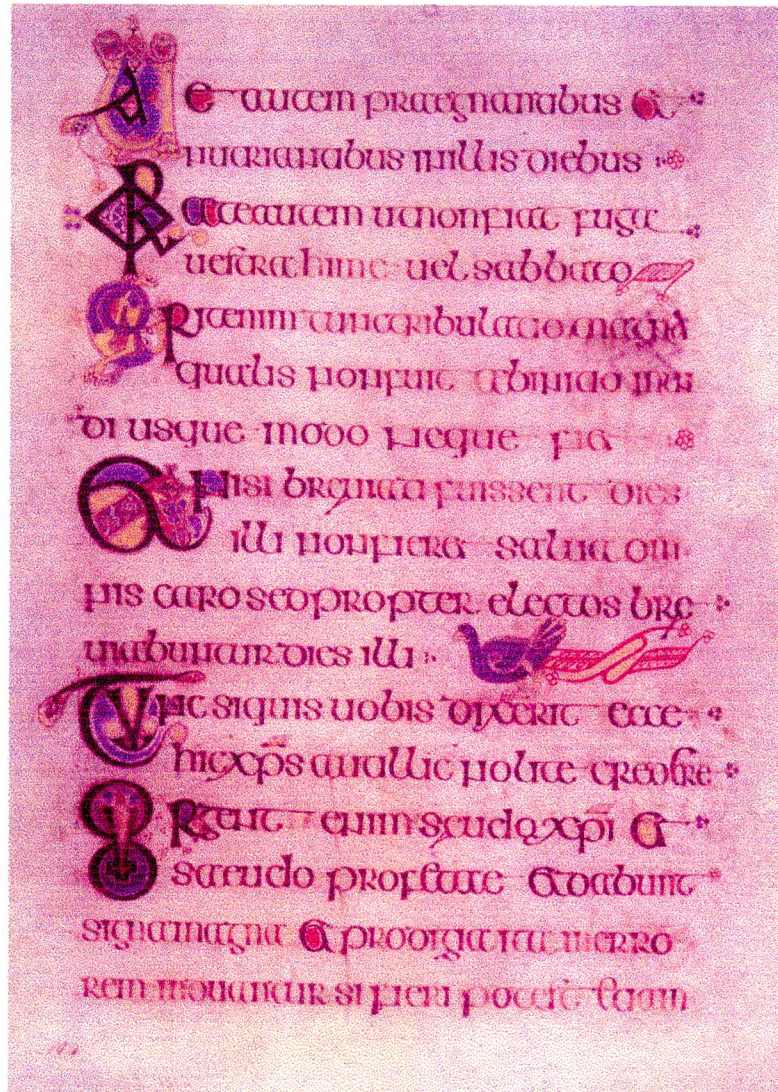 Uae autem praegnantibus et
nutrientibus in illis diebus
Orate autem ut non fiat fuga
uestra hime uel sabbato
Erit enim tunc tribulatio magna
qualis non fuit ab initio mun
di usque modo neque fiet
Et nisi breuiati fuissent dies
illi non fieret salua om
nis caro sed propter electos bre
uiabuntur dies illi
Tunc si quis uobis dixerit ecce
hic xps aut illic nolite credere
Surgent enim seudo xpi et
seudo profetae et dabunt
signa magna et prodigia ita ut in erro
rem moueantur si fieri potest etiam